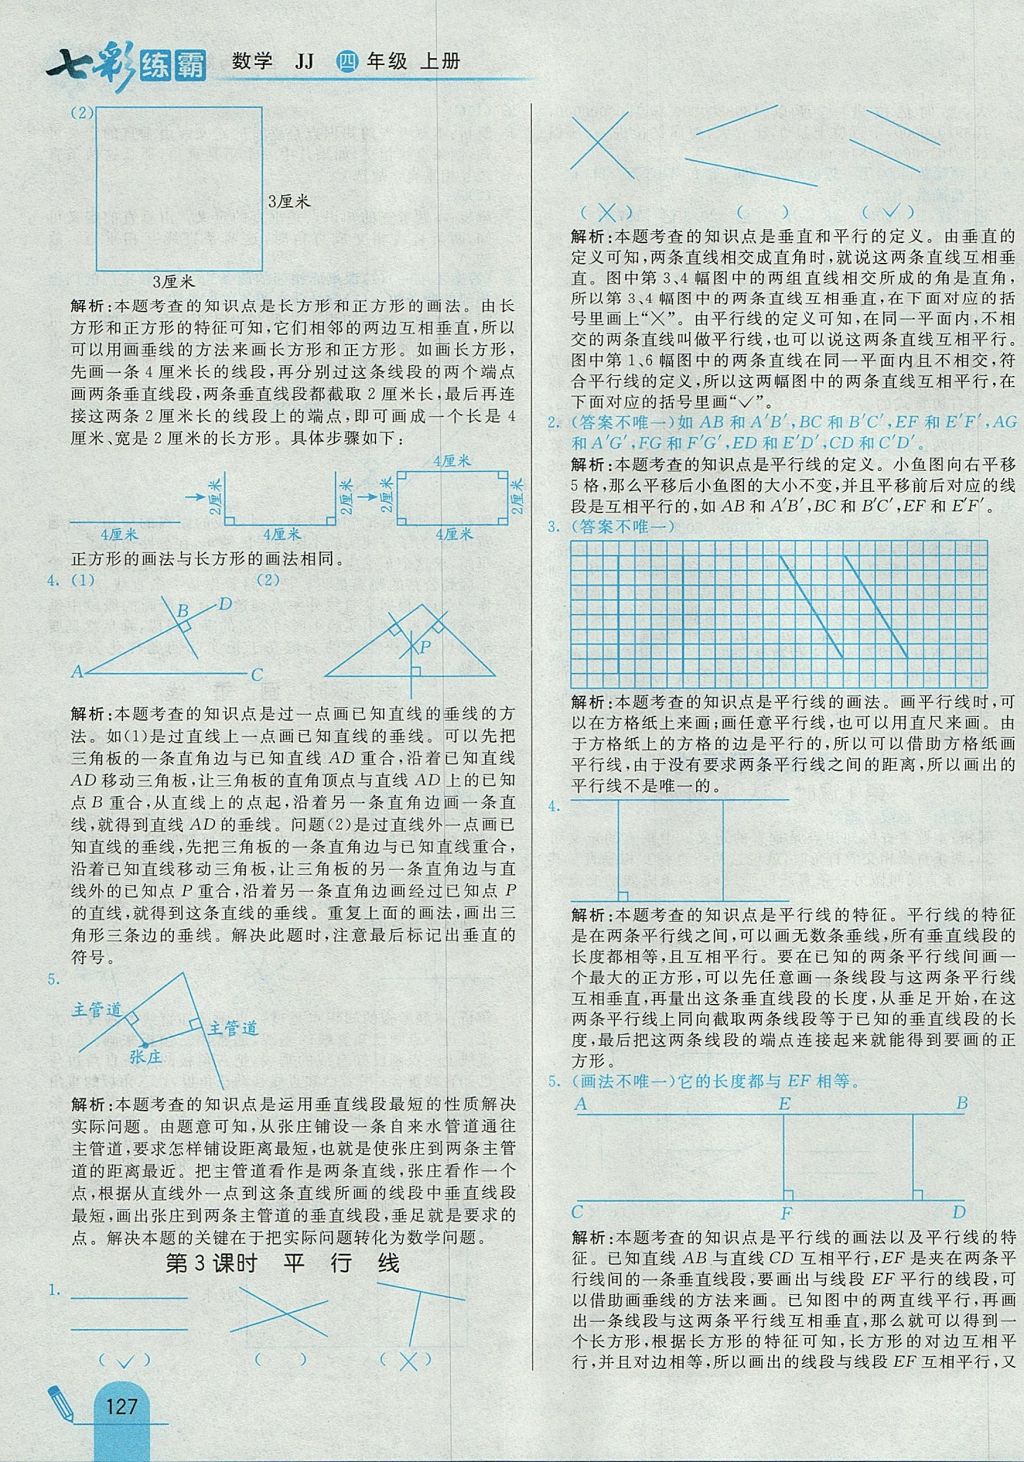 七彩练霸 数学 JJ 四年级 上册
(2)
3厘米
3厘米
解析:本题考查的知识点是长方形和正方形的画法。由长
方形和正方形的特征可知,它们相邻的两边互相垂直,所以
可以用画垂线的方法来画长方形和正方形。如画长方形,
先画一条4厘米长的线段,再分别过这条线段的两个端点
画两条垂直线段,两条垂直线段都截取2厘米长,最后再连
接这两条2厘米长的线段上的端点,即可画成一个长是4
厘米、宽是2厘米的长方形。具体步骤如下:
4厘米
2厘米 2厘米 2厘米 2厘米
4厘米 4厘米 4厘米
正方形的画法与长方形的画法相同。
4. (1) (2)
B D
P
A C
解析:本题考查的知识点是过一点画已知直线的垂线的方
法。如(1)是过直线上一点画已知直线的垂线。可以先把
三角板的一条直角边与已知直线AD重合,沿着已知直线
AD移动三角板,让三角板的直角顶点与直线AD上的已知
点B重合,从直线上的点起,沿着另一条直角边画一条直
线,就得到直线AD的垂线。问题(2)是过直线外一点画已
知直线的垂线,先把三角板的一条直角边与已知直线重合,
沿着已知直线移动三角板,让三角板的另一条直角边与直
线外的已知点P重合,沿着另一条直角边画经过已知点P
的直线,就得到这条直线的垂线。重复上面的画法,画出三
角形三条边的垂线。解决此题时,注意最后标记出垂直的
符号。
5.
主管道
主管道
张庄
解析:本题考查的知识点是运用垂直线段最短的性质解决
实际问题。由题意可知,从张庄铺设一条自来水管道通往
主管道,要求怎样铺设距离最短,也就是使张庄到两条主管
道的距离最近。把主管道看作是两条直线,张庄看作一个
点,根据从直线外一点到这条直线所画的线段中垂直线段
最短,画出张庄到两条主管道的垂直线段,垂足就是要求的
点。解决本题的关键在于把实际问题转化为数学问题。
第3课时 平 行 线
1.
(✓) ( ) (×)
127
(×) ( ) (✓)
解析:本题考查的知识点是垂直和平行的定义。由垂直的
定义可知,两条直线相交成直角时,就说这两条直线互相垂
直。图中第3、4幅图中的两组直线相交所成的角是直角,
所以第3、4幅图中的两条直线互相垂直,在下面对应的括
号里画上“×”。由平行线的定义可知,在同一平面内,不相
交的两条直线叫做平行线,也可以说这两条直线互相平行。
图中第1、6幅图中的两条直线在同一平面内且不相交,符
合平行线的定义,所以这两幅图中的两条直线互相平行,在
下面对应的括号里画“✓”。
2. (答案不唯一)如AB和A′B′,BC和B′C′,EF和E′F′,AG
和A′G′,FG和F′G′,ED和E′D′,CD和C′D′。
解析:本题考查的知识点是平行线的定义。小鱼图向右平移
5格,那么平移后小鱼图的大小不变,并且平移前后对应的线
段是互相平行的,如AB和A′B′,BC和B′C′,EF和E′F′。
3. (答案不唯一)
解析:本题考查的知识点是平行线的画法。画平行线时,可
以在方格纸上来画;画任意平行线,也可以用直尺来画。由
于方格纸上的方格的边是平行的,所以可以借助方格纸画
平行线,由于没有要求两条平行线之间的距离,所以画出的
平行线不是唯一的。
4.
解析:本题考查的知识点是平行线的特征。平行线的特征
是在两条平行线之间,可以画无数条垂线,所有垂直线段的
长度都相等,且互相平行。要在已知的两条平行线间画一
个最大的正方形,可以先任意画一条线段与这两条平行线
互相垂直,再量出这条垂直线段的长度,从垂足开始,在这
两条平行线上同向截取两条线段等于已知的垂直线段的长
度,最后把这两条线段的端点连接起来就能得到要画的正
方形。
5. (画法不唯一)它的长度都与EF相等。
A E B
C F D
解析:本题考查的知识点是平行线的画法以及平行线的特
征。已知直线AB与直线CD互相平行,EF是夹在两条平
行线间的一条垂直线段,要画出与线段EF平行的线段,可
以借助画垂线的方法来画。已知图中的两直线平行,再画
出一条线段与这两条平行线互相垂直,那么就可以得到一
个长方形,根据长方形的特征可知,长方形的对边互相平
行,并且对边相等,所以画出的线段与线段EF互相平行,又